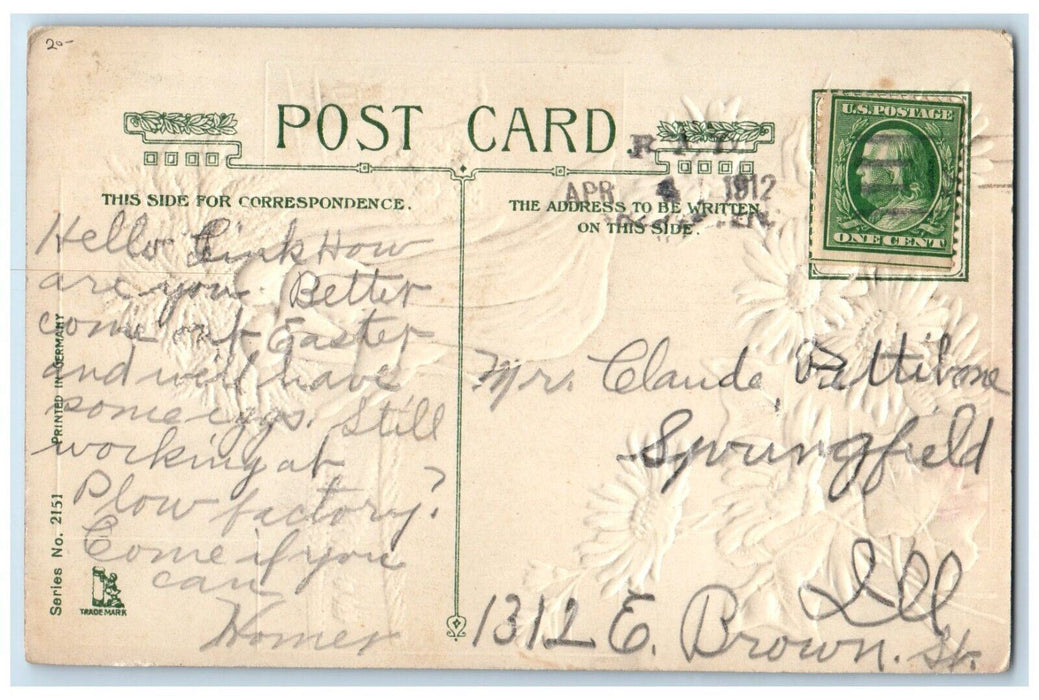 20-
POST CARD
R.F.D.
APR 4 1912
THIS SIDE FOR CORRESPONDENCE.
THE ADDRESS TO BE WRITTEN
ON THIS SIDE.
U.S. POSTAGE
ONE CENT
Hello Link How
are you. Better
come out Easter
and will have
some eggs. Still
working at
Plow factory?
Come if you
can
Homer
Mr. Claude Pettibone
Springfield
Ill
1312 E. Brown. St.
Series No. 2151 PRINTED IN GERMANY
TRADE MARK